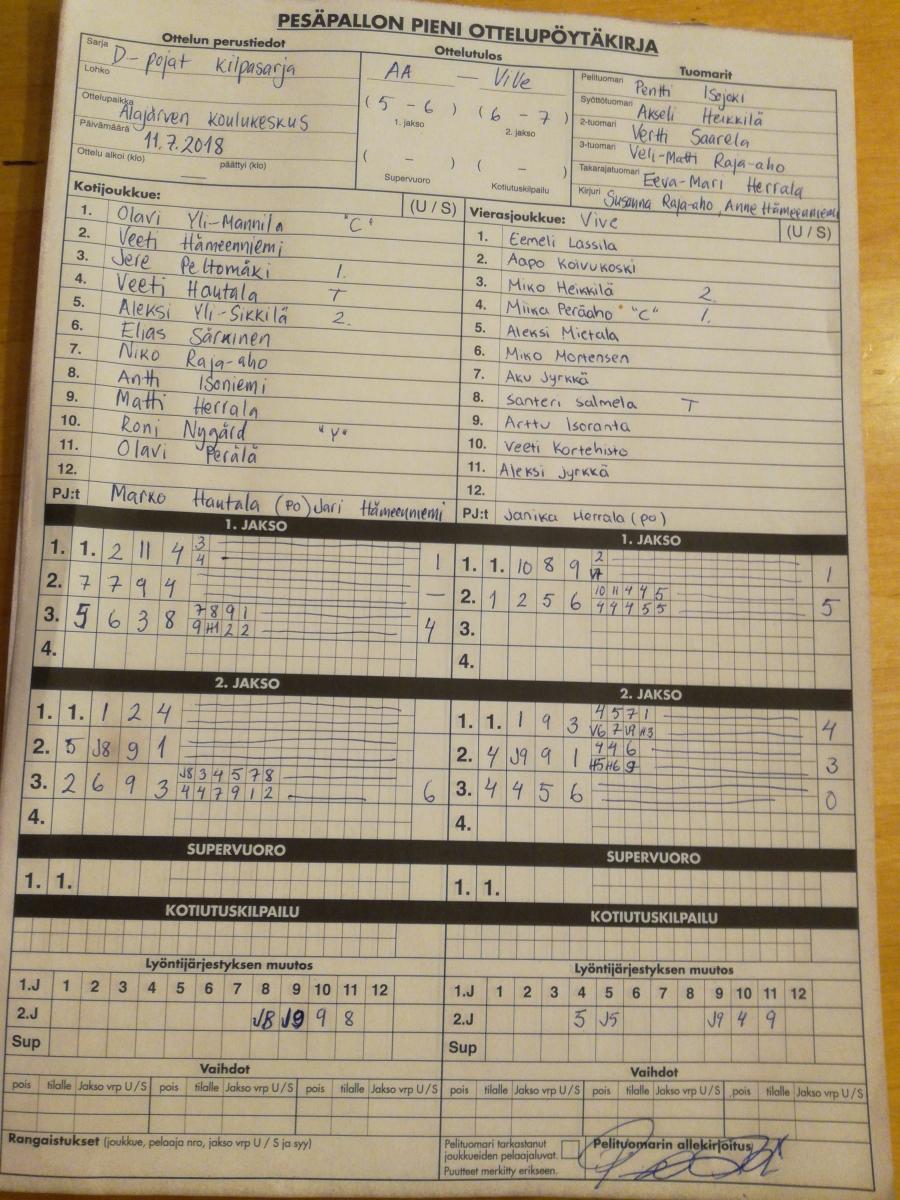 PESÄPALLON PIENI OTTELUPÖYTÄKIRJA
Ottelun perustiedot
Sarja D-pojat kilpasarja
Lohko
Ottelupaikka Alajärven koulukeskus
Päivämäärä 11.7.2018
Ottelu alkoi (klo) päättyi (klo)
Ottelutulos
AA — ViVe
(5 - 6) (6 - 7)
1. jakso 2. jakso
( - ) ( - )
Supervuoro Kotiutuskilpailu
Tuomarit
Pelituomari Pentti Isojoki
Syöttötuomari Akseli Heikkilä
2-tuomari Vertti Saarela
3-tuomari Veli-Matti Raja-aho
Takarajatuomari Eeva-Mari Herrala
Kirjuri Susanna Raja-aho, Anne Hämeenniemi
Kotijoukkue: (U / S)
1. Olavi Yli-Mannila "C"
2. Veeti Hämeenniemi
3. Jere Peltomäki 1.
4. Veeti Hautala T
5. Aleksi Yli-Sikkilä 2.
6. Elias Särkinen
7. Niko Raja-aho
8. Antti Isoniemi
9. Matti Herrala
10. Roni Nygård "V"
11. Olavi Perälä
12.
PJ:t Marko Hautala (po) Jari Hämeenniemi
Vierasjoukkue: Vive (U / S)
1. Eemeli Lassila
2. Aapo Koivukoski
3. Miko Heikkilä 2.
4. Miika Peräaho "C" 1.
5. Aleksi Mietala
6. Miko Mortensen
7. Aku Jyrkkä
8. Santeri Salmela T
9. Arttu Isoranta
10. Veeti Kortehisto
11. Aleksi Jyrkkä
12.
PJ:t Janika Herrala (po)
1. JAKSO
1. 1. 2 11 4 3 1
4
2. 7 7 9 4 —
3. 5 6 3 8 7 8 9 1 4
9 H1 2 2
4.
1. JAKSO
1. 1. 10 8 9 2 1
2. 1 2 5 6 10 11 4 4 5 5
4 4 4 5 5
3.
4.
2. JAKSO
1. 1. 1 2 4
2. 5 J8 9 1
3. 2 6 9 3 J8 3 4 5 7 8 6
4 4 7 9 1 2
4.
2. JAKSO
1. 1. 1 9 3 4 5 7 1 4
V6 7 V9 H3
2. 4 J9 9 1 4 4 6 3
H5 H6 9
3. 4 4 5 6 0
4.
SUPERVUORO
1. 1.
SUPERVUORO
1. 1.
KOTIUTUSKILPAILU
KOTIUTUSKILPAILU
Lyöntijärjestyksen muutos
1.J 1 2 3 4 5 6 7 8 9 10 11 12
2.J J8 J9 9 8
Sup
Lyöntijärjestyksen muutos
1.J 1 2 3 4 5 6 7 8 9 10 11 12
2.J 5 J5 J9 4 9
Sup
Vaihdot
pois tilalle Jakso vrp U / S pois tilalle Jakso vrp U / S pois tilalle Jakso vrp U / S
Vaihdot
pois tilalle Jakso vrp U / S pois tilalle Jakso vrp U / S pois tilalle Jakso vrp U / S
Rangaistukset (joukkue, pelaaja nro, jakso vrp U / S ja syy)
Pelituomari tarkastanut
joukkueiden pelaajaluvat.
Puutteet merkitty erikseen.
Pelituomarin allekirjoitus